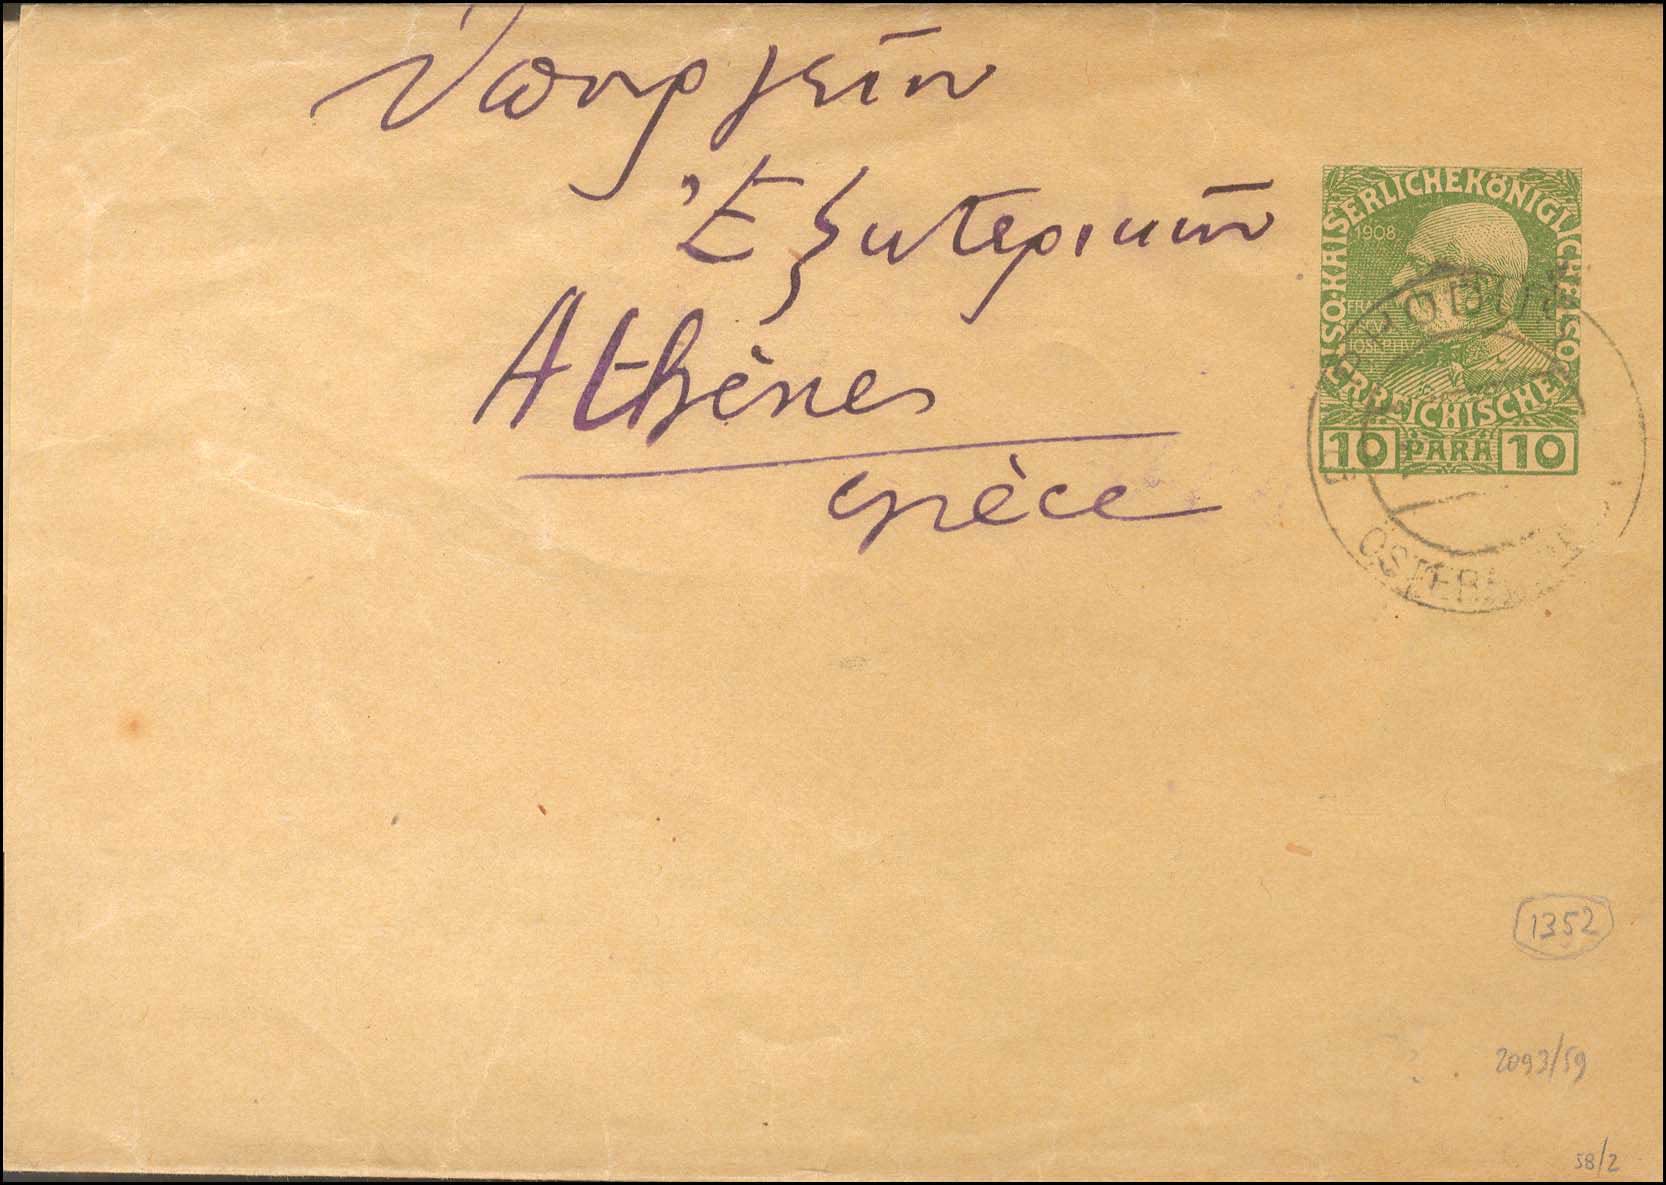 Ὑπουργεῖον
Ἐξωτερικῶν
Athènes
Grèce
KAISERLICHE KÖNIGLICHE
ÖSTERREICHISCHE
1908
FRANZ
JOSEPH I
10 PARA 10
1352
2093/59
58/2